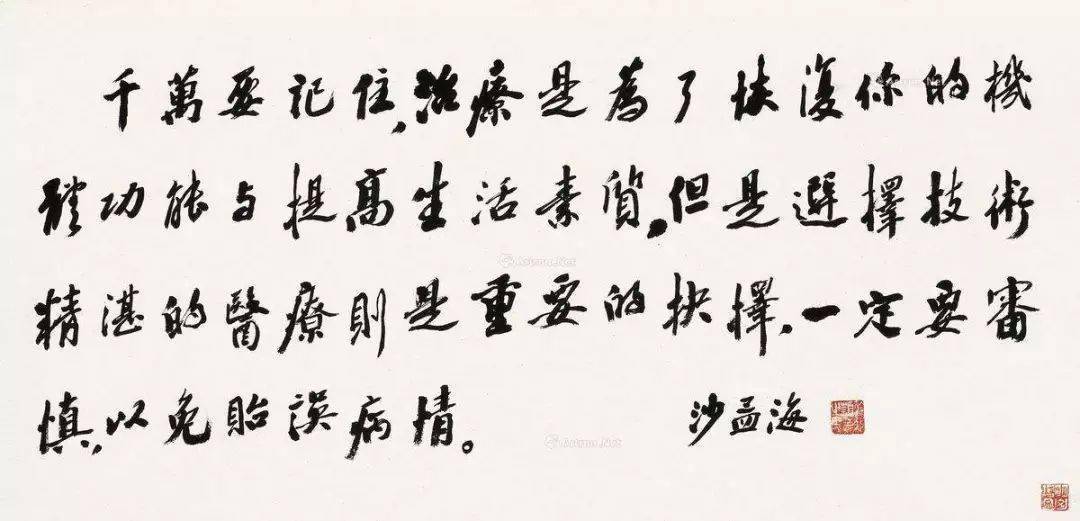 千萬要记住,治療是為了恢復你的機
體功能与提高生活素質。但是選擇技術
精湛的醫療則是重要的抉擇,一定要審
慎,以免貽誤病情。 沙孟海
Artron.Net
Artron.Net